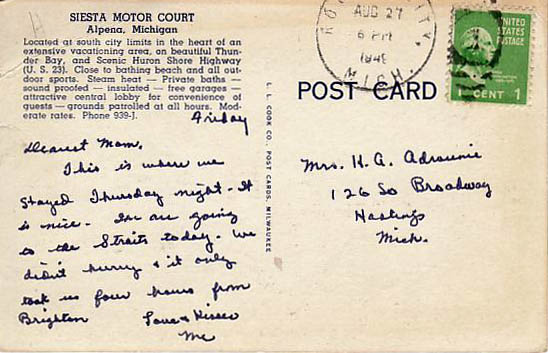 SIESTA MOTOR COURT
Alpena, Michigan
Located at south city limits in the heart of an
extensive vacationing area, on beautiful Thun-
der Bay, and Scenic Huron Shore Highway
(U. S. 23). Close to bathing beach and all out-
door sports. Steam heat — Private baths —
sound proofed — insulated — free garages —
attractive central lobby for convenience of
guests — grounds patrolled at all hours. Mod-
erate rates. Phone 939-J.
Friday
Dearest Mom,
This is where we
stayed Thursday night. It
is nice. We are going
to the Straits today. We
didn't hurry & it only
took us four hours from
Brighton Love & Kisses
Me
L. L. COOK CO., POST CARDS, MILWAUKEE
AUG 27
6 PM
MICH
UNITED
STATES
POSTAGE
1 CENT 1
POST CARD
Mrs. H. A.
126 So Broadway
Hastings
Mich.